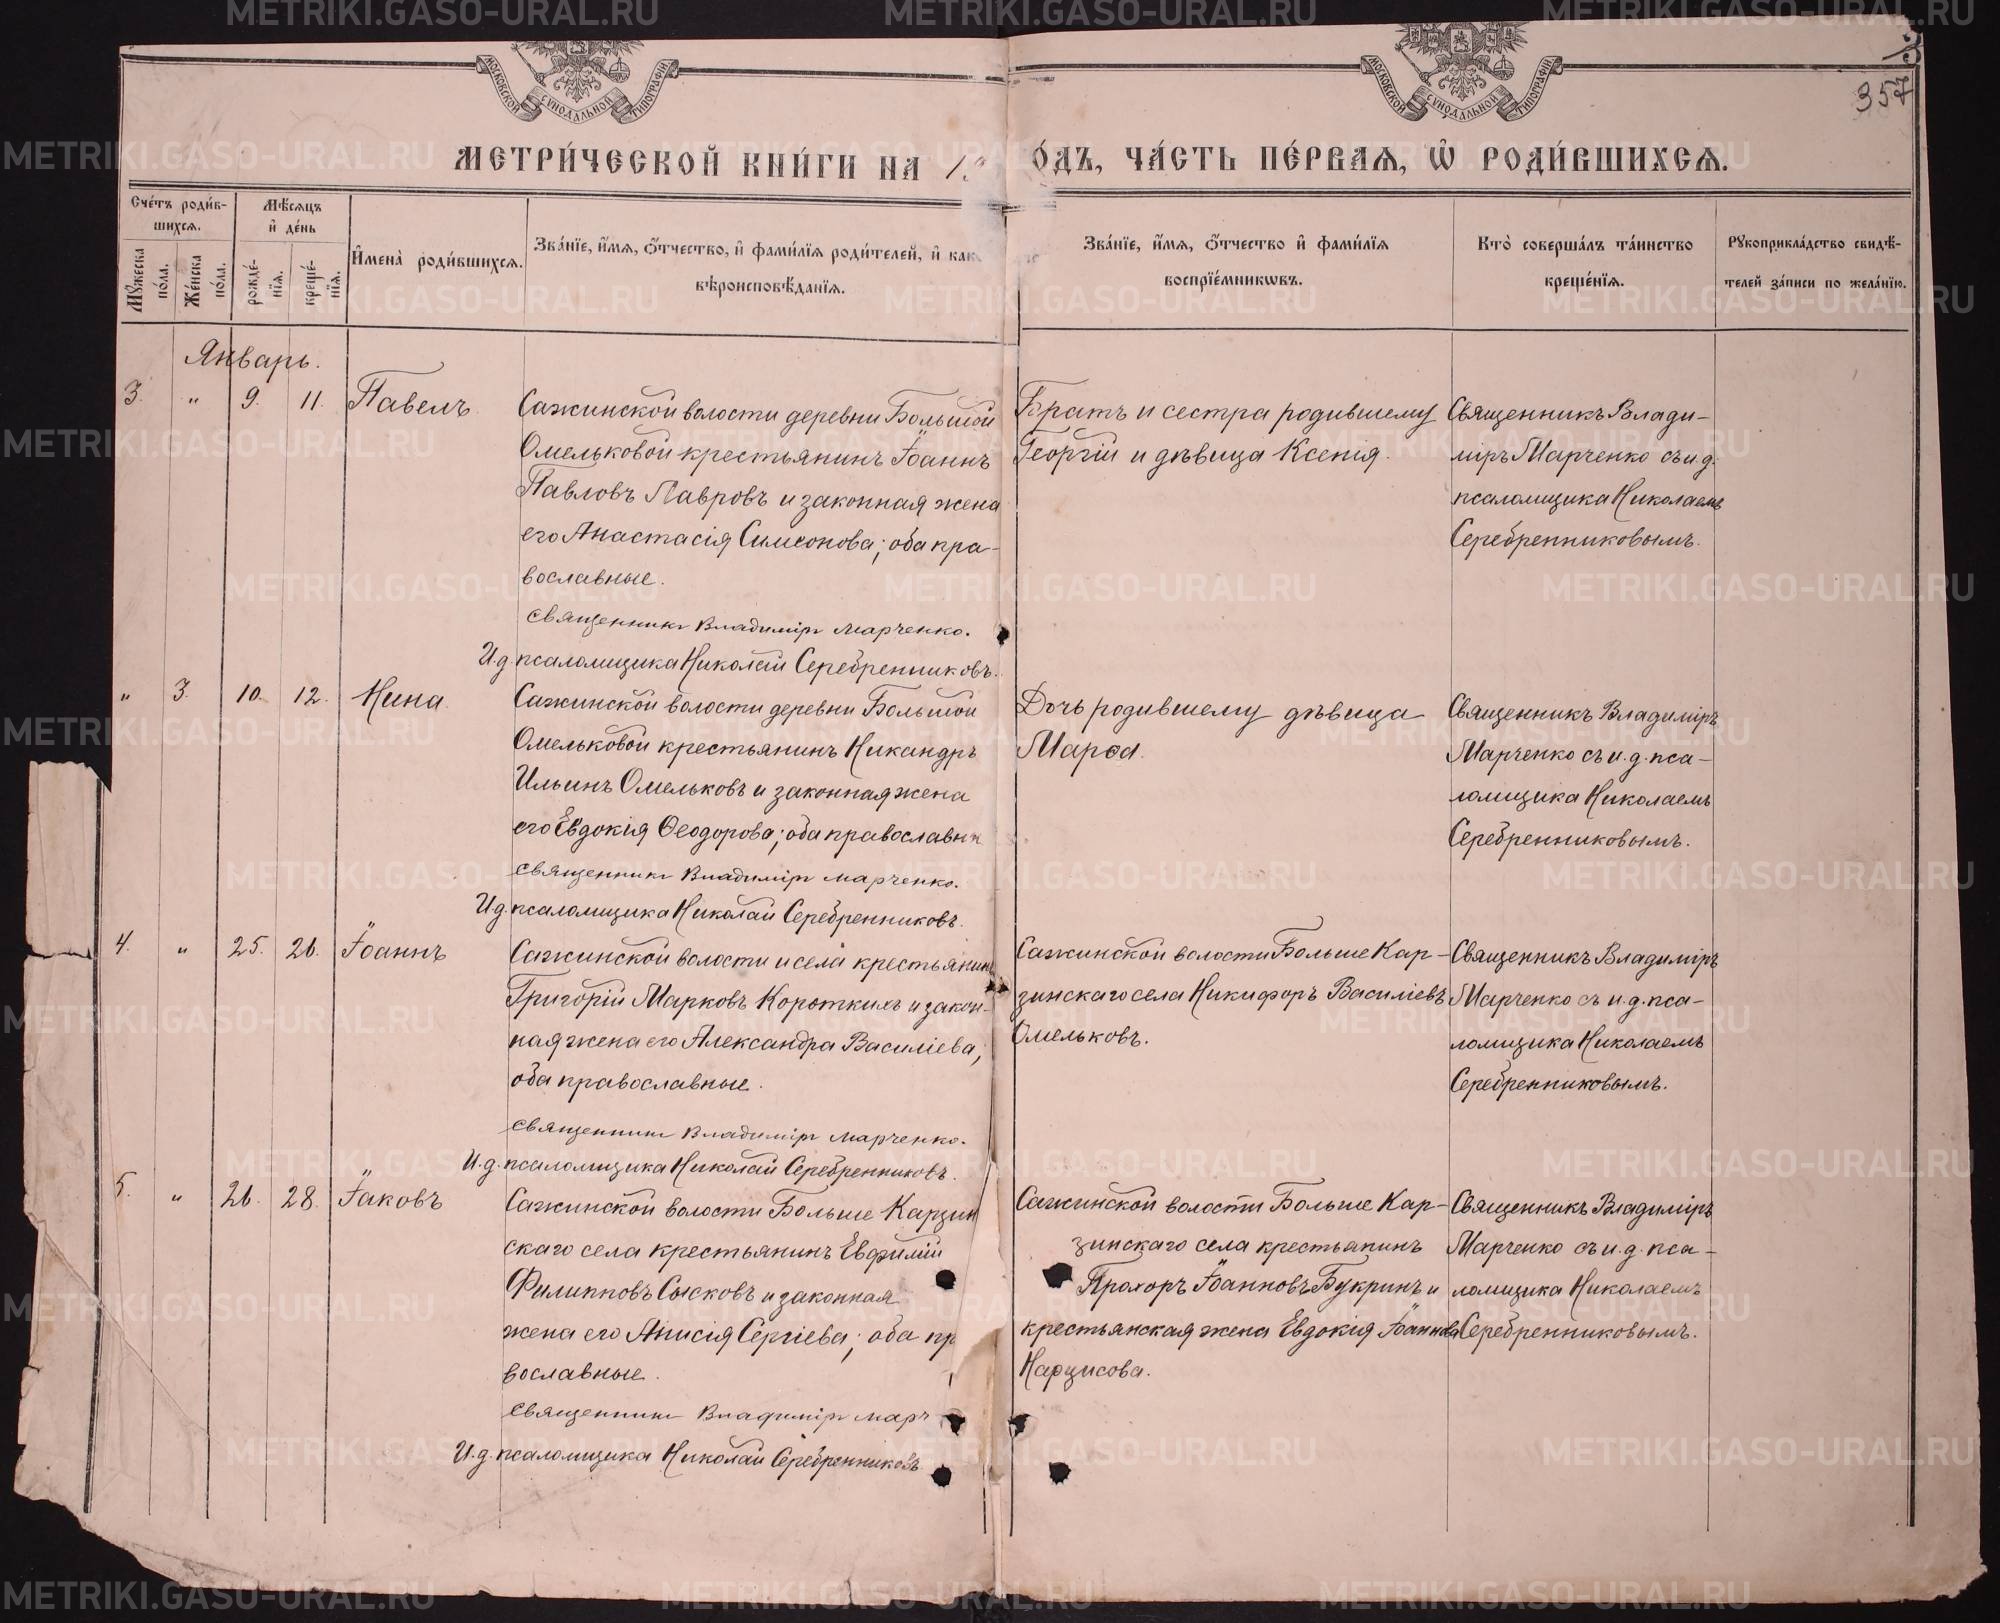 МОСКОВСКОЙ СУНОДАЛЬНОЙ ТИПОГРАФІИ
МОСКОВСКОЙ СУНОДАЛЬНОЙ ТИПОГРАФІИ
357
МЕТРИ́ЧЕСКОЙ КНИ́ГИ НА 19
О́ДЪ, ЧА́СТЬ ПЕ́РВАѦ, Ѡ҆ РОДИ́ВШИХСѦ.
Сче́тъ роди́в-
шихсѧ.
Мꙋ́жеска по́ла.
Же́нска по́ла.
Мѣ́сѧцъ
и҆ де́нь
рожде́-
нїѧ.
креще́-
нїѧ.
И҆мена̀ роди́вшихсѧ.
Зва́нїе, и҆́мѧ, ѻ҆́тчество, и҆ фами́лїѧ роди́телей, и҆ как
вѣроисповѣ́данїѧ.
Зва́нїе, и҆́мѧ, ѻ҆́тчество и҆ фами́лїѧ
воспрїе́мникѡвъ.
Кто̀ соверша́лъ та́инство
креще́нїѧ.
Рꙋкоприкла́дство свидѣ́-
телей за́писи по жела́нїю.
Январь.
3. " 9. 11. Павелъ
Сажинской волости деревни Большой
Омельковой крестьянинъ Іоаннъ
Павловъ Лавровъ и законная жена
его Анастасія Симеонова; оба пра-
вославные.
Священникъ Владиміръ Марченко.
И.д. псаломщика Николай Серебренниковъ.
Братъ и сестра родившему
Георгій и дѣвица Ксенія.
Священникъ Влади-
міръ Марченко съ и.д.
псаломщика Николаемъ
Серебренниковымъ.
" 3. 10. 12. Нина
Сажинской волости деревни Большой
Омельковой крестьянинъ Никандръ
Ильинъ Омельковъ и законная жена
его Евдокія Ѳеодорова; оба православны
Священникъ Владиміръ Марченко.
И.д. псаломщика Николай Серебренниковъ.
Дочь родившему дѣвица
Марѳа.
Священникъ Владиміръ
Марченко съ и.д. пса-
ломщика Николаемъ
Серебренниковымъ.
4. " 25. 26. Іоаннъ
Сажинской волости и села крестьянинъ
Григорій Марковъ Короткихъ и закон-
ная жена его Александра Василіева;
оба православные.
Священникъ Владиміръ Марченко.
И.д. псаломщика Николай Серебренниковъ.
Сажинской волости Больше Кар-
зинскаго села Никифоръ Василіевъ
Омельковъ.
Священникъ Владиміръ
Марченко съ и.д. пса-
ломщика Николаемъ
Серебренниковымъ.
5. " 26. 28. Іаковъ
Сажинской волости Больше Карзин
скаго села крестьянинъ Евфимій
Филипповъ Сысковъ и законная
жена его Анисія Сергіева; оба пр
вославные.
Священникъ Владиміръ Марч
И.д. псаломщика Николай Серебренниковъ
Сажинской волости Больше Кар-
зинскаго села крестьянинъ
Прохоръ Іоанновъ Букринъ и
крестьянская жена Евдокія Іоаннова
Нарцисова.
Священникъ Владиміръ
Марченко съ и.д. пса-
ломщика Николаемъ
Серебренниковымъ.